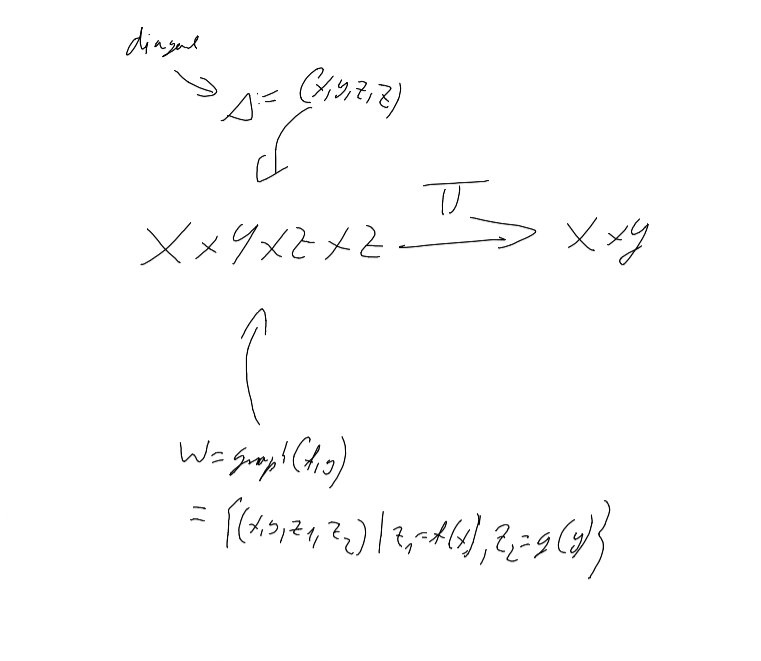 diagonal
Δ := (x,y,z,z)
X × Y × Z × Z → X × Y
π
W = graph(f,g)
= {(x,y,z₁,z₂) | z₁=f(x), z₂=g(y)}